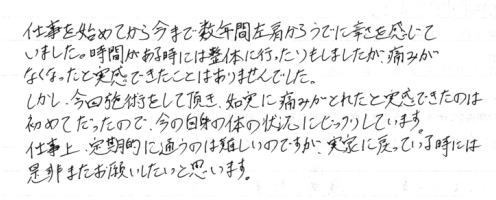 仕事を始めてから今まで数年間左肩からうでに辛さを感じて
いました。時間がある時には整体に行ったりもしましたが、痛みが
なくなったと実感できたことはありませんでした。
しかし、今回施術をして頂き、如実に痛みがとれたと実感できたのは
初めてだったので、今の自身の体の状況にビックリしています。
仕事上、定期的に通うのは難しいのですが、実家に戻っている時には
是非またお願いしたいと思います。